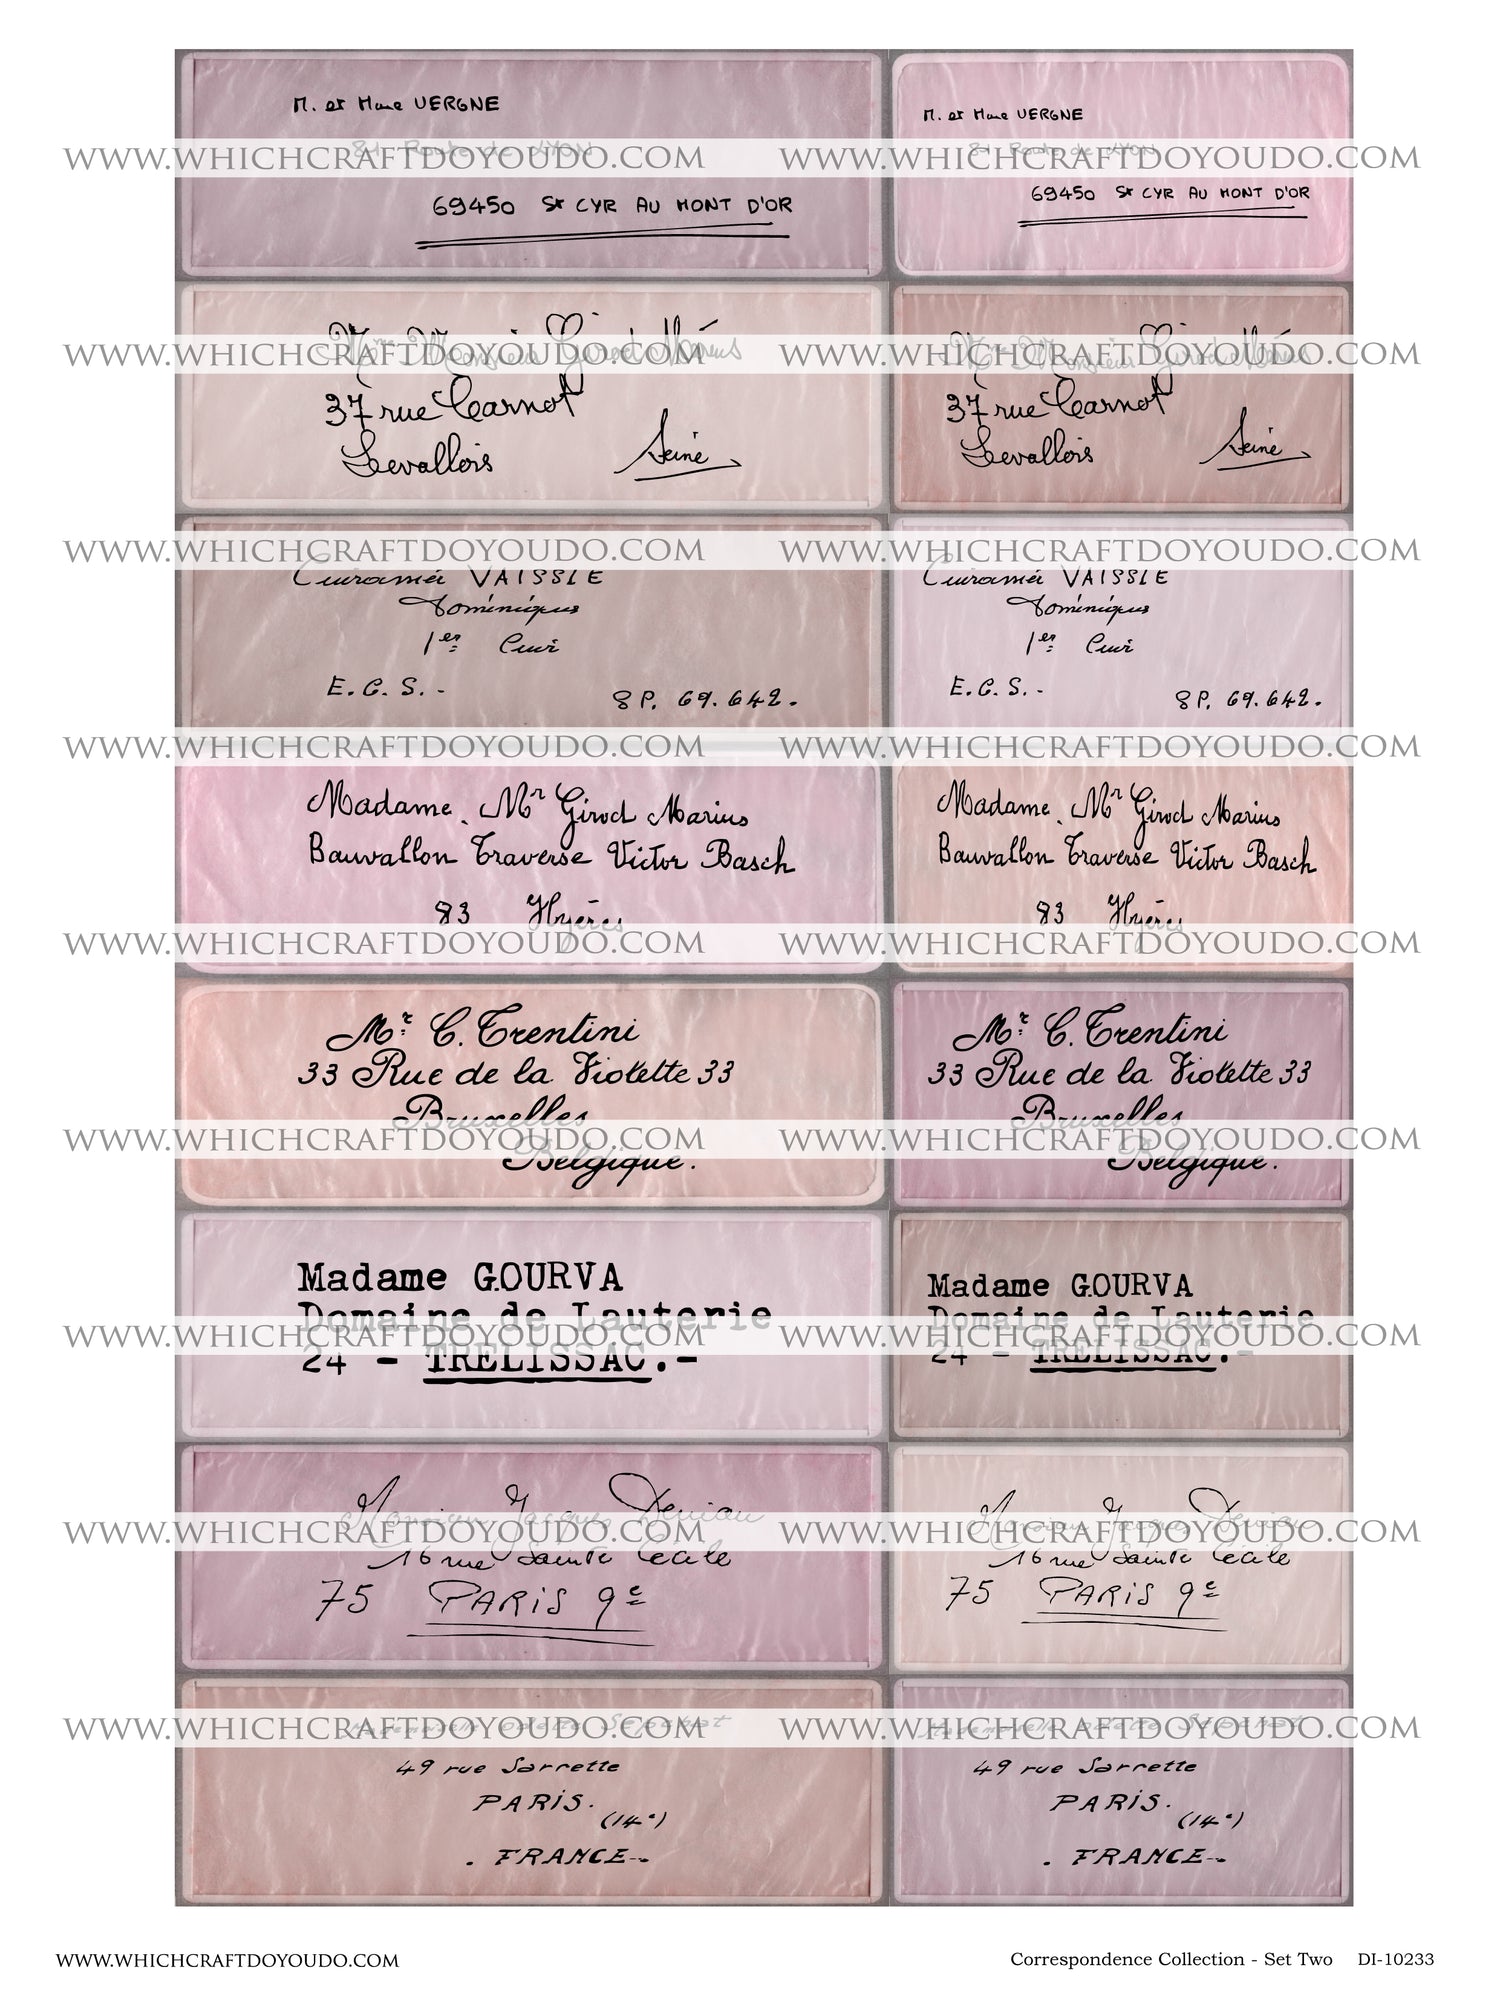 M. et Mme VERGNE
81 Route de LYON
69450 St CYR AU MONT D'OR
M. et Mme VERGNE
81 Route de LYON
69450 St CYR AU MONT D'OR
WWW.WHICHCRAFTDOYOUDO.COM WWW.WHICHCRAFTDOYOUDO.COM
Mme Monsieur Girod Marius
37 rue Carnot
Levallois Seine
Mme Monsieur Girod Marius
37 rue Carnot
Levallois Seine
WWW.WHICHCRAFTDOYOUDO.COM WWW.WHICHCRAFTDOYOUDO.COM
VAISSIE
Dominique
1er
E.C.S.-
SP. 69.642.
VAISSIE
Dominique
1er
E.C.S.-
SP. 69.642.
WWW.WHICHCRAFTDOYOUDO.COM WWW.WHICHCRAFTDOYOUDO.COM
Madame. Mr Girod Marius
Bauvallon Traverse Victor Basch
83 Hyères
Madame. Mr Girod Marius
Bauvallon Traverse Victor Basch
83 Hyères
WWW.WHICHCRAFTDOYOUDO.COM WWW.WHICHCRAFTDOYOUDO.COM
WWW.WHICHCRAFTDOYOUDO.COM WWW.WHICHCRAFTDOYOUDO.COM
Mr. C. Trentini
33 Rue de la Violette 33
Bruxelles
Belgique.
Mr. C. Trentini
33 Rue de la Violette 33
Bruxelles
Belgique.
WWW.WHICHCRAFTDOYOUDO.COM WWW.WHICHCRAFTDOYOUDO.COM
Madame GOURVA
Domaine de Lauterie
24 - TRELISSAC.-
Madame GOURVA
Domaine de Lauterie
24 - TRELISSAC.-
WWW.WHICHCRAFTDOYOUDO.COM WWW.WHICHCRAFTDOYOUDO.COM
Monsieur Jacques
16 rue Sainte Cécile
75 PARIS 9e
Monsieur Jacques
16 rue Sainte Cécile
75 PARIS 9e
WWW.WHICHCRAFTDOYOUDO.COM WWW.WHICHCRAFTDOYOUDO.COM
Mademoiselle Odette
49 rue Sarrette
PARIS.
(14e)
. FRANCE-.
Mademoiselle Odette
49 rue Sarrette
PARIS.
(14e)
. FRANCE-.
WWW.WHICHCRAFTDOYOUDO.COM WWW.WHICHCRAFTDOYOUDO.COM
WWW.WHICHCRAFTDOYOUDO.COM Correspondence Collection - Set Two DI-10233